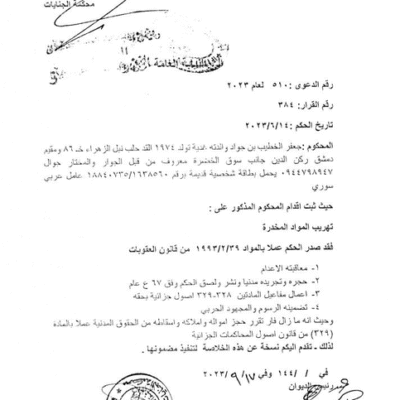 محكمة الجنايات
رقم الدعوى : ٥١٠ لعام ٢٠٢٣
رقم القرار: ٣٨٤
تاريخ الحكم : ٢٠٢٣/٦/١٤
المحكوم : جعفر الخطيب بن جواد والدته تولد ١٩٧٤ القد حلب نبل الزهراء خـ ٨٦ ومقيم
دمشق ركن الدين جانب سوق الخضرة معروف من قبل الجوار والمختار جوال
٠٩٤٤٧٩٨٩٤٧ يحمل بطاقة شخصية قديمة برقم عامل عربي
سوري
حيث ثبت اقدام المحكوم المذكور على :
تهريب المواد المخدرة
فقد صدر الحكم عملا بالمواد ١٩٩٣/٢/٣٩ من قانون العقوبات
١ - معاقبته الاعدام
٢ - حجره وتجريده مدنيا ونشر ولصق الحكم وفق ٦٧ ع عام
٣ - اعمال مفاعيل المادتين ٣٢٨-٣٢٩ اصول جزائية بحقه
٤ - تضمينه الرسوم والمجهود الحربي
وحيث انه ما زال فار تقرر حجز امواله واملاكه واسقاطه من الحقوق المدنية عملا بالمادة
(٣٢٩) من قانون اصول المحاكمات الجزائية
لذلك ـ تقدم اليكم نسخة عن هذه الخلاصة لتنفيذ مضمونها .
في / / ١٤٤ وفي ٢٠٢٣/٩/١٧
رئيس الديوان